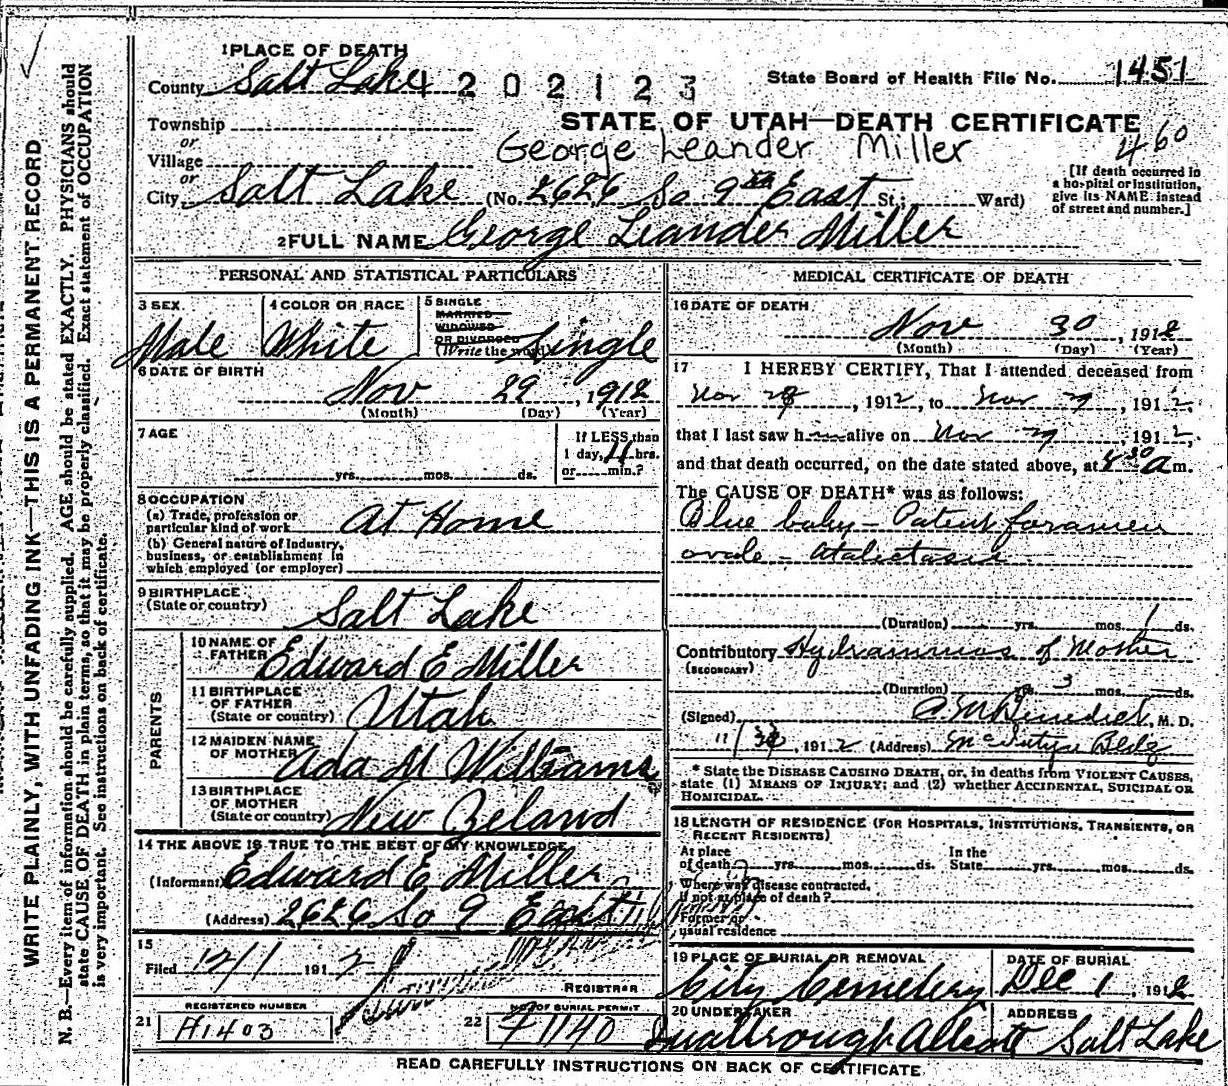 1 PLACE OF DEATH
County Salt Lake 1 2 0 2 1 2 3
State Board of Health File No. 1451
Township
or
Village
or
STATE OF UTAH—DEATH CERTIFICATE
George Leander Miller 460
City Salt Lake (No. 2626 So 9th East St.; Ward)
[If death occurred in a hospital or institution, give its NAME instead of street and number.]
2 FULL NAME George Leander Miller
PERSONAL AND STATISTICAL PARTICULARS
3 SEX
Male
4 COLOR OR RACE
White
5 SINGLE
MARRIED
WIDOWED
OR DIVORCED
(Write the word) Single
6 DATE OF BIRTH
Nov 29, 1912
(Month) (Day) (Year)
7 AGE
yrs. mos. ds.
If LESS than
1 day, 11 hrs.
or min.?
8 OCCUPATION
(a) Trade, profession or
particular kind of work At Home
(b) General nature of industry,
business, or establishment in
which employed (or employer)
9 BIRTHPLACE
(State or country) Salt Lake
PARENTS
10 NAME OF
FATHER Edward E Miller
11 BIRTHPLACE
OF FATHER
(State or country) Utah
12 MAIDEN NAME
OF MOTHER Ada M Williams
13 BIRTHPLACE
OF MOTHER
(State or country) New Zeland
14 THE ABOVE IS TRUE TO THE BEST OF MY KNOWLEDGE
(Informant) Edward E Miller
(Address) 2626 So 9 East
15
Filed 12/1 1912
REGISTRAR
REGISTERED NUMBER
21 H1403
NO OF BURIAL PERMIT
22 F1140
MEDICAL CERTIFICATE OF DEATH
16 DATE OF DEATH
Nov 30, 1912
(Month) (Day) (Year)
17 I HEREBY CERTIFY, That I attended deceased from
Nov, 1912, to Nov 29, 1912,
that I last saw h alive on Nov 29, 1912,
and that death occurred, on the date stated above, at 4 30 a m.
The CAUSE OF DEATH* was as follows:
Blue baby - Patent foramen
ovale - atalectasis
(Duration) yrs. mos. 1 ds.
Contributory Hydramnios of Mother
(SECONDARY)
(Duration) yrs. 3 mos. ds.
(Signed) A. M Benedict, M. D.
11/30, 1912 (Address) McIntyre Bldg
* State the DISEASE CAUSING DEATH, or, in deaths from VIOLENT CAUSES,
state (1) MEANS OF INJURY; and (2) whether ACCIDENTAL, SUICIDAL OR
HOMICIDAL.
18 LENGTH OF RESIDENCE (FOR HOSPITALS, INSTITUTIONS, TRANSIENTS, OR
RECENT RESIDENTS)
At place
of death yrs. mos. ds.
In the
State yrs. mos. ds.
Where was disease contracted,
if not at place of death?
Former or
usual residence
19 PLACE OF BURIAL OR REMOVAL
City Cemetery
DATE OF BURIAL
Dec 1, 1912
20 UNDERTAKER
ADDRESS
Salt Lake
READ CAREFULLY INSTRUCTIONS ON BACK OF CERTIFICATE.
WRITE PLAINLY, WITH UNFADING INK—THIS IS A PERMANENT RECORD
N. B.—Every item of information should be carefully supplied. AGE should be stated EXACTLY. PHYSICIANS should
state CAUSE OF DEATH in plain terms, so that it may be properly classified. Exact statement of OCCUPATION
is very important. See instructions on back of certificate.